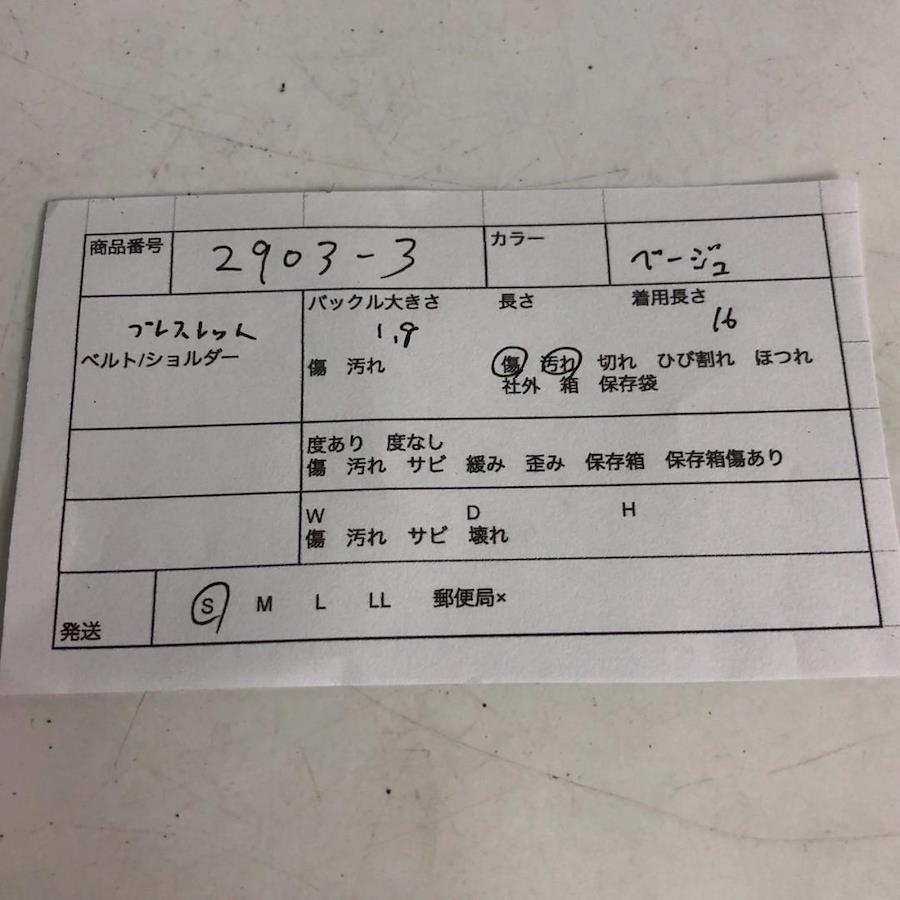 商品番号 2903-3 カラー ベージュ
ブレスレット バックル大きさ 長さ 着用長さ
1.9 16
ベルト/ショルダー 傷 汚れ 傷 汚れ 切れ ひび割れ ほつれ
社外 箱 保存袋
度あり 度なし
傷 汚れ サビ 緩み 歪み 保存箱 保存箱傷あり
W D H
傷 汚れ サビ 壊れ
発送 S M L LL 郵便局×